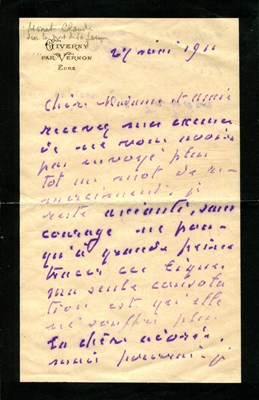 Monet Claude
GIVERNY
PAR VERNON
EURE
27 mai 1911
chère Madame et amie
recevez mes excuses
de ne vous avoir
pas envoyé plus
tôt un mot de re-
merciements, je
reste anéanti, sans
courage ne pou-
qu'à grande peine
tracer ces lignes
ma seule consola
tion est qu'elle
ne souffre plus
la chère adorée,
mais pourrai-je